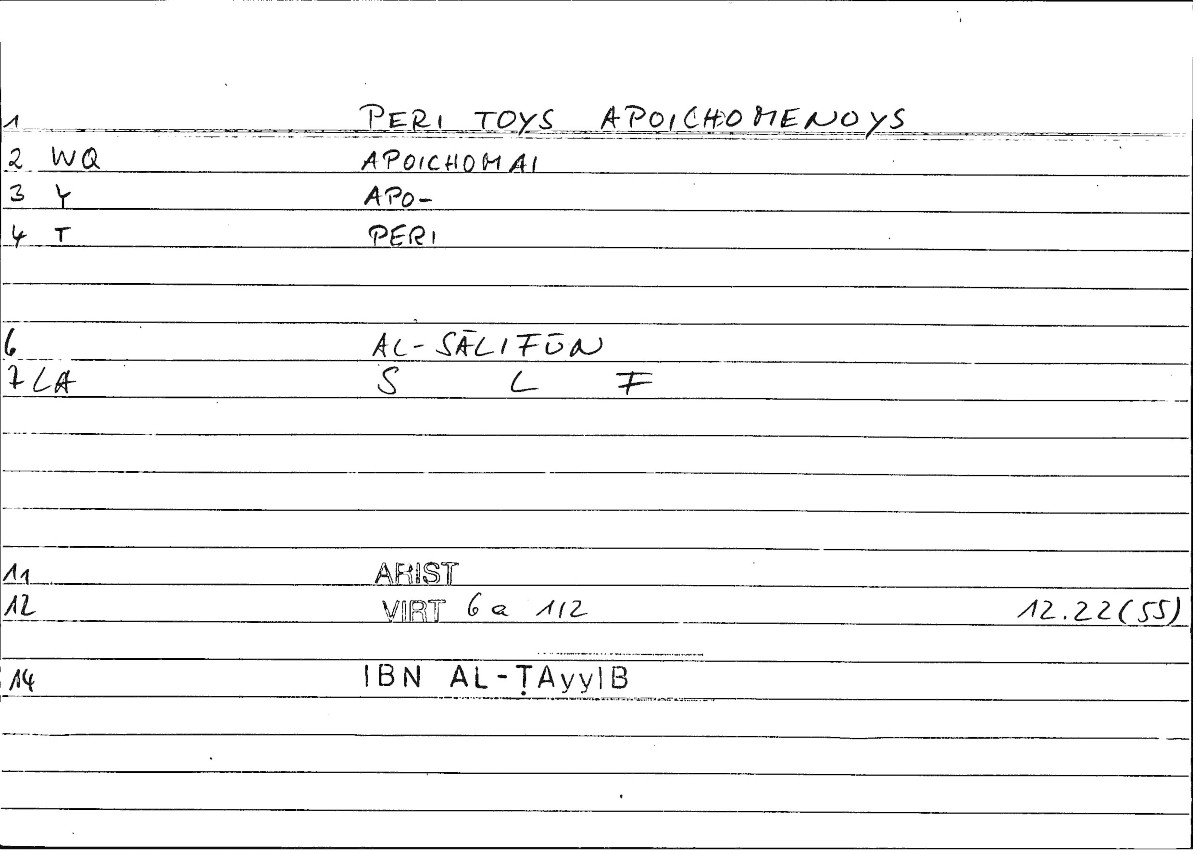 1 PERI TOYS APOICHOMENOYS
2 WQ APOICHOMAI
3 Y APO-
4 T PERI
6 AL-SĀLIFŪN
7 LA S L F
11 ARIST
12 VIRT 6 a 1/2 12.22(55)
14 IBN AL-ṬAyyIB